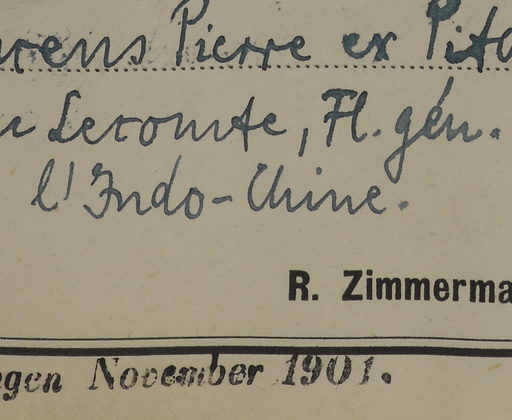 rens Pierre ex Pita
Lecomte, Fl. gén.
l'Indo-Chine.
R. Zimmerma
gen November 1901.